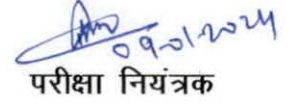 09-01-2024
परीक्षा नियंत्रक